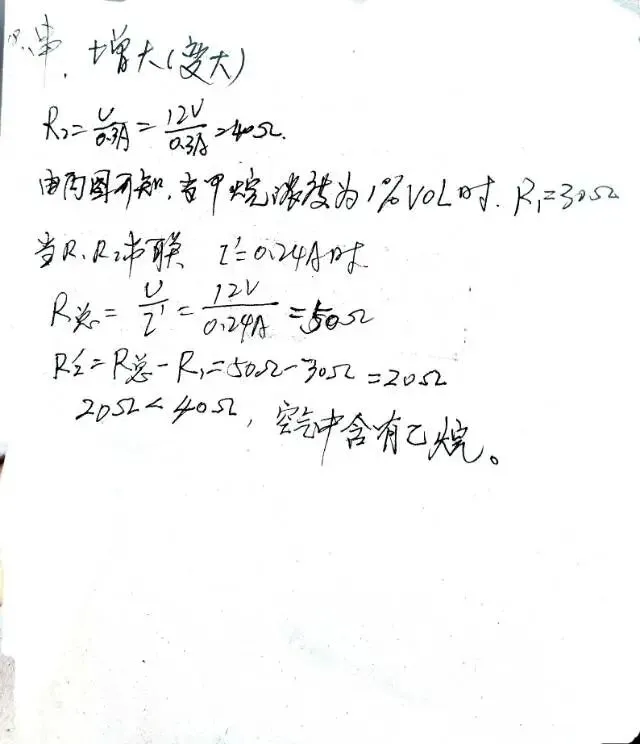 串. 增大(变大)
R₂=U/0.3A=12V/0.3A=40Ω.
由丙图可知,当甲烷浓度为1%VOL时. R₁=30Ω
当R₁R₂串联 I'=0.24A时
R总=U/I'=12V/0.24A=50Ω
R₂'=R总-R₁=50Ω-30Ω=20Ω
20Ω<40Ω, 空气中含有乙烷。